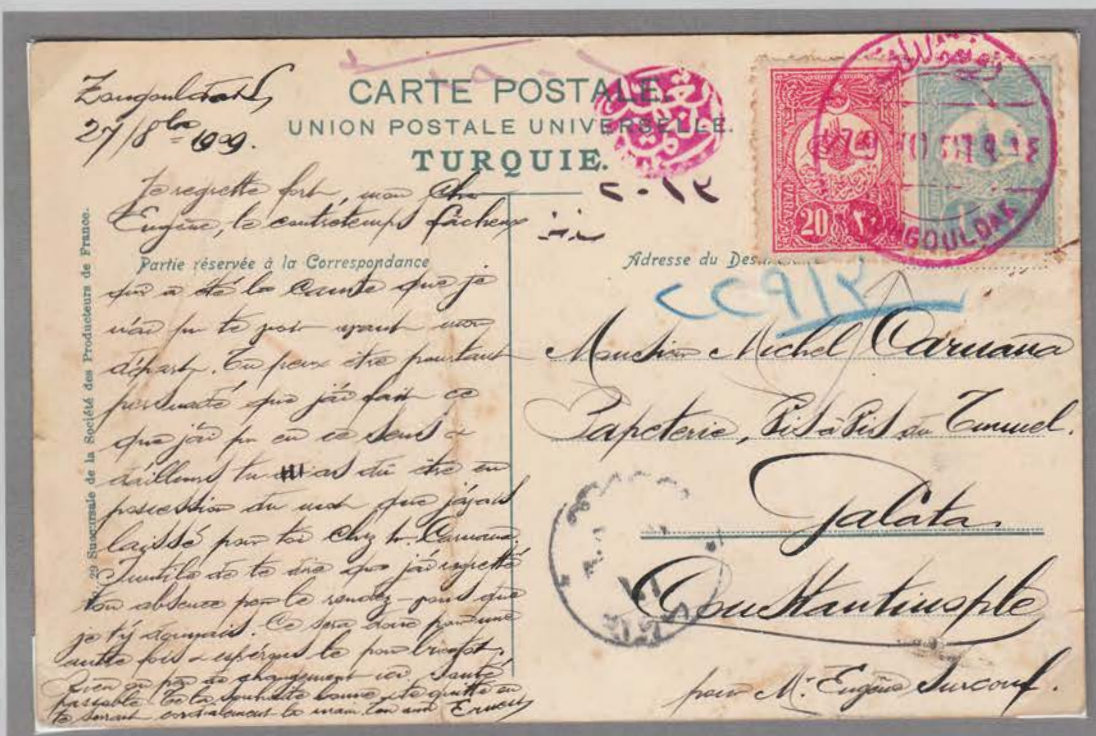 Zongouldak
27/8bre 1909.
CARTE POSTALE.
UNION POSTALE UNIVERSELLE.
TURQUIE.
Je regrette fort, mon cher
Eugène, le contretemps fâcheux
Partie réservée à la Correspondance
qui a été la cause que je
n'ai pu te voir avant mon
départ. Tu peux être pourtant
persuadé que j'ai fait ce
que j'ai pu en ce sens &
d'ailleurs tu as dû être en
possession du mot que j'avais
laissé pour toi chez Mr. Caruana.
Inutile de te dire que j'ai regretté
ton absence pour le rendez-vous que
je t'y donnais. Ce sera donc pour une
autre fois & espérons le pour bientôt.
Rien ou pas de changement ici, santé
passable. Je te la souhaite bonne & te quitte en
te serrant cordialement la main. Ton ami Ernest
29 Succursale de la Société des Producteurs de France.
٢٠١٢
20 PARAS ٢٠
ZONGOULDAK
Adresse du
CC912
Monsieur Michel Caruana
Papeterie, Vis à Vis du Tunnel.
Galata
Constantinople
pour Mr. Eugène Surcouf.